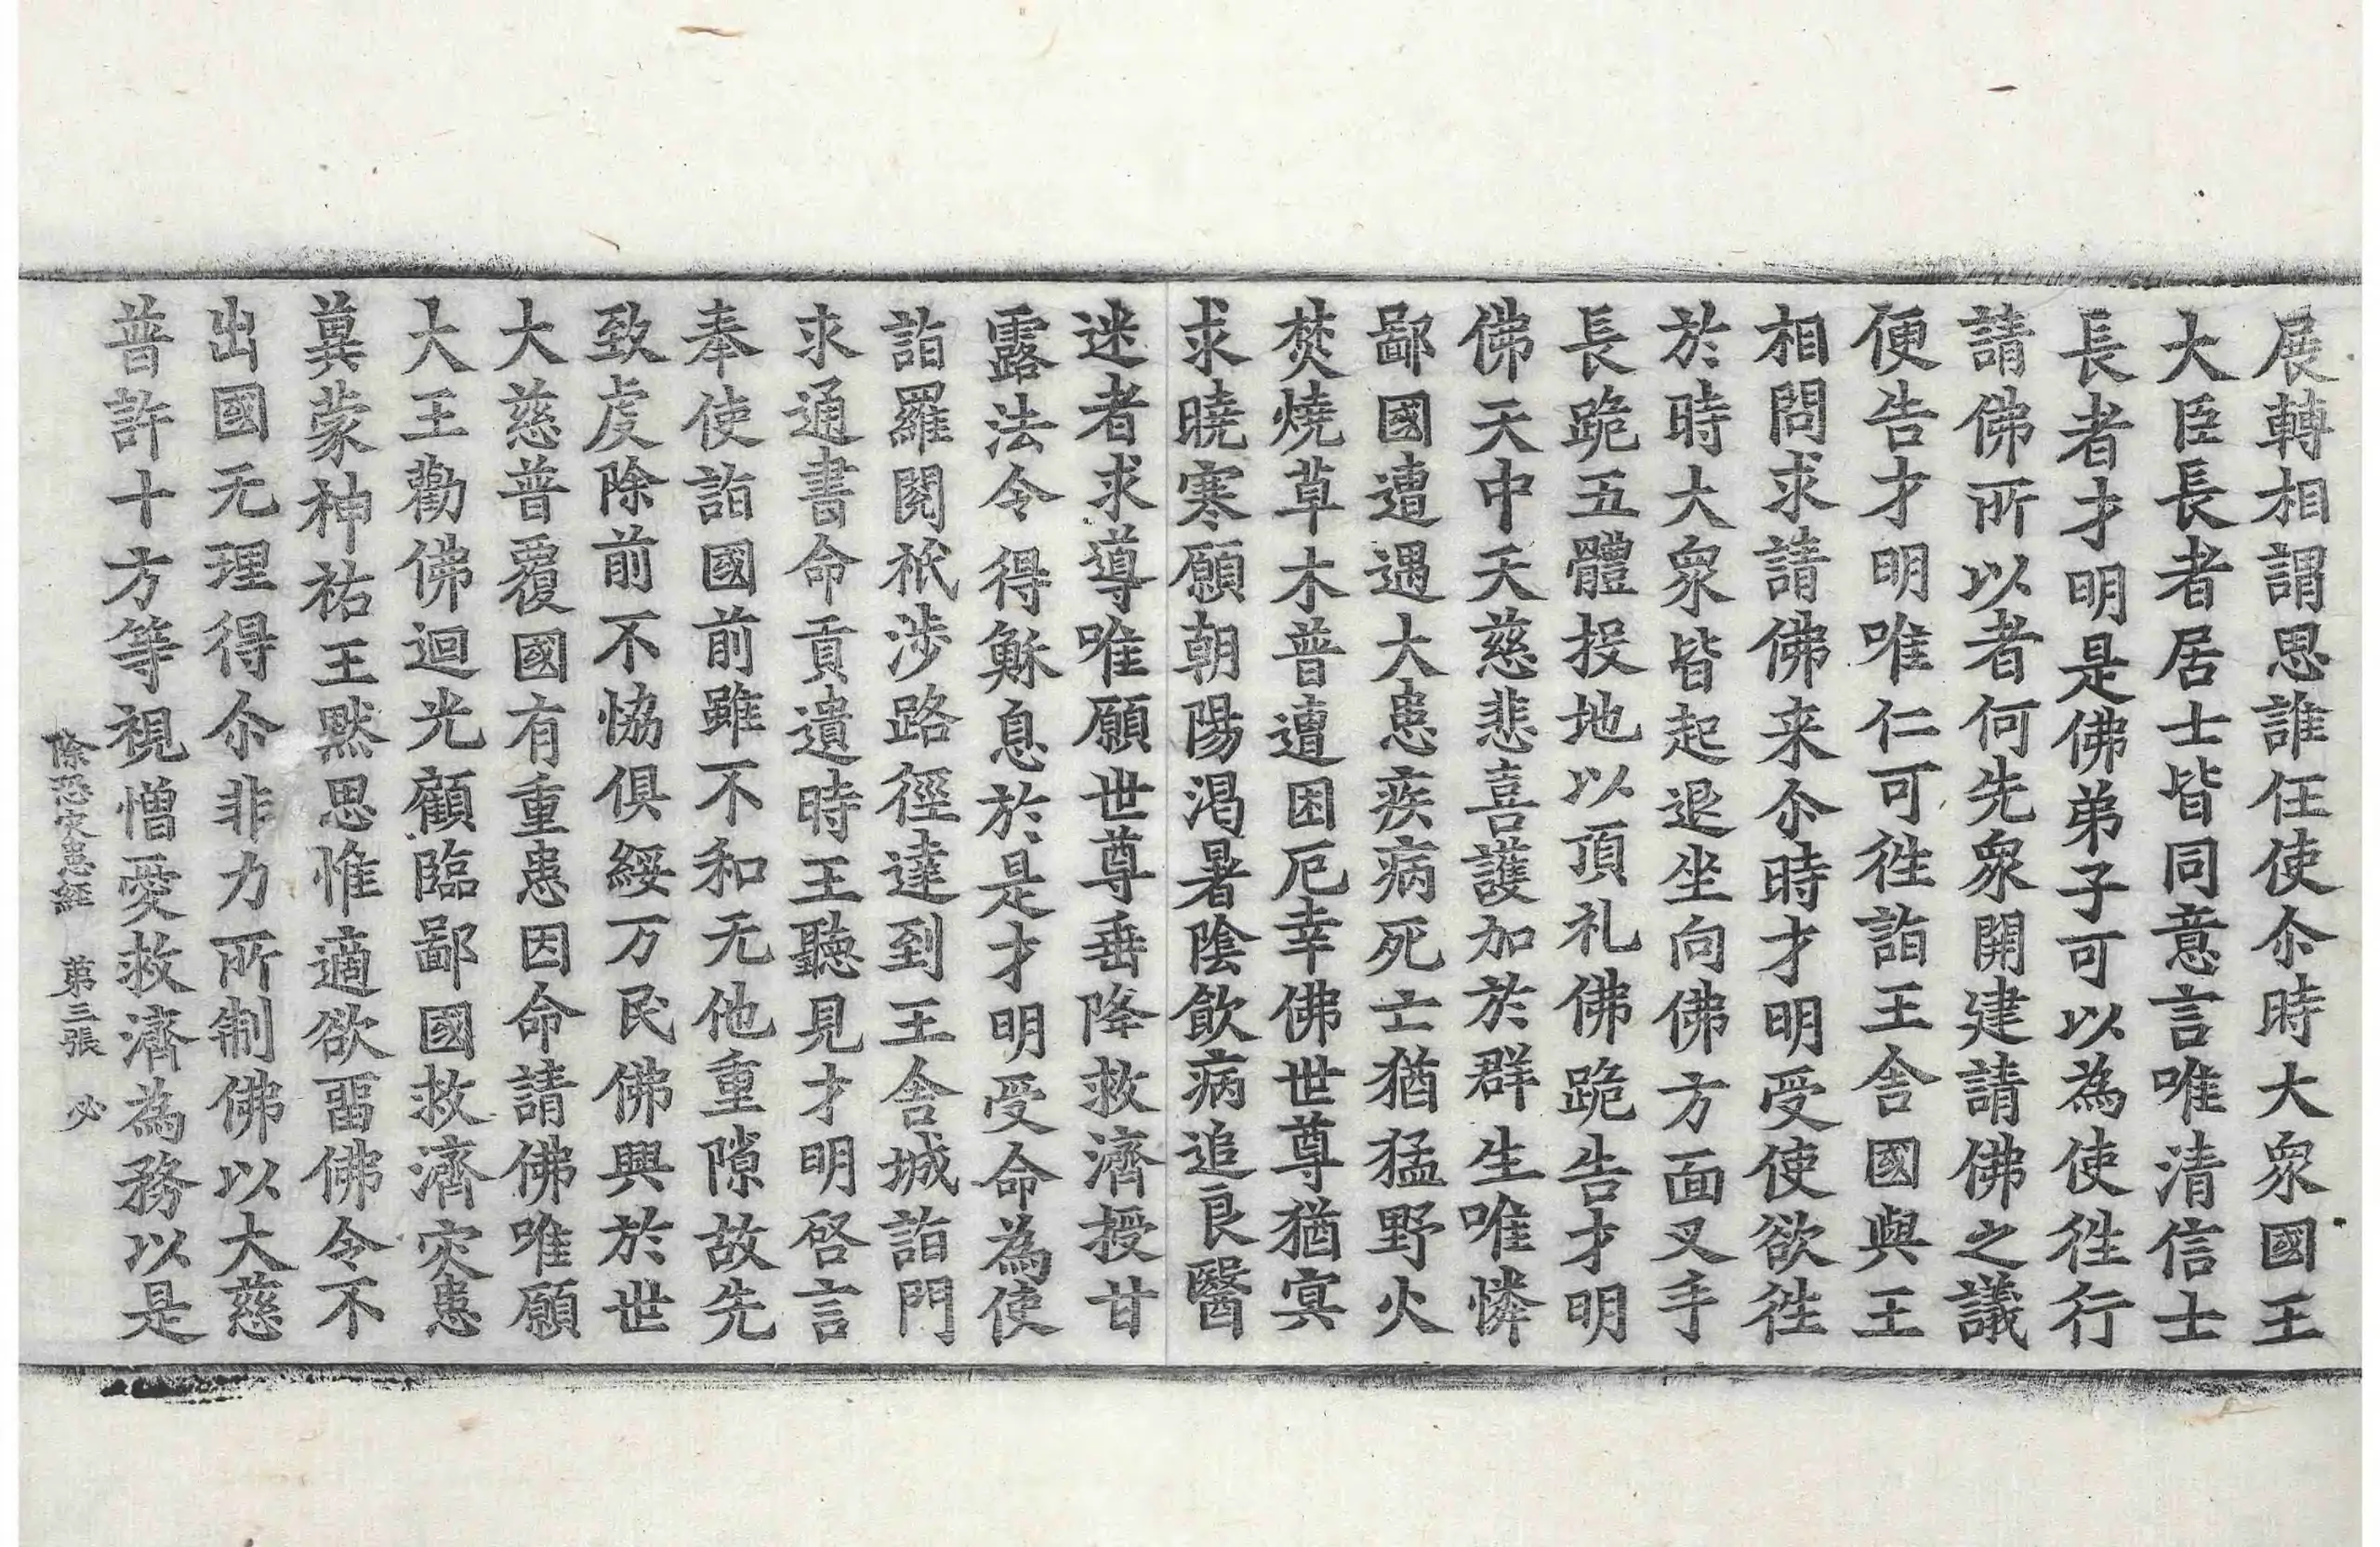 展轉相謂思誰任使尒時大衆國王
大臣長者居士皆同意言唯清信士
長者才明是佛弟子可以為使徃行
請佛所以者何先衆開建請佛之議
便告才明唯仁可徃詣王舎國與王
相問求請佛来尒時才明受使欲徃
於時大衆皆起退坐向佛方面叉手
長跪五體投地以頂礼佛跪告才明
佛天中天慈悲喜護加於群生唯憐
鄙國遭遇大患疾病死亡猶猛野火
焚燒草木普遭困厄幸佛世尊猶寘
求曉寒願朝陽渴暑陰飲病追良醫
迷者求導唯願世尊垂降救濟授甘
露法令得穌息於是才明受命為使
詣羅閱祇涉路徑達到王舎城詣門
求通書命貢遺時王聽見才明啓言
奉使詣國前雖不和无他重隙故先
致虔除前不恊俱綏万民佛興於世
大慈普覆國有重患因命請佛唯願
大王勸佛迴光顧臨鄙國救濟灾患
冀蒙神祐王黙思惟適欲留佛令不
出國无理得尒非力所制佛以大慈
普許十方等視憎愛救濟為務以是
除恐灾患經　第三張　必